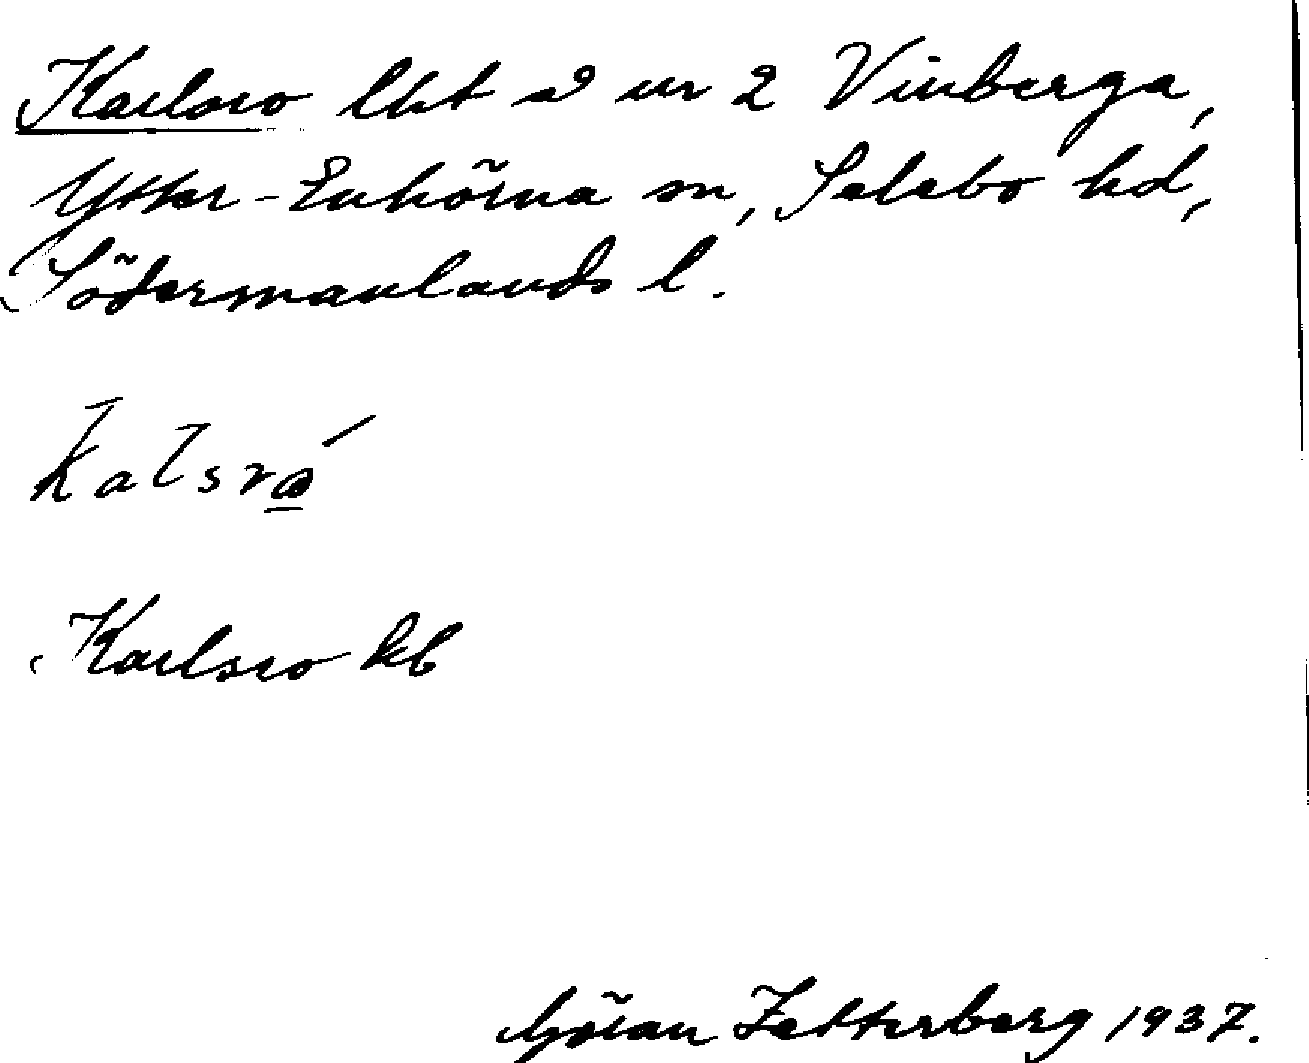 Karlsro lht å nr 2 Vinberga,
Ytter-Enhörna sn, Selebo hd,
Södermanlands l.
Kalsró
Karlsro kb
Göran Zetterberg 1937.